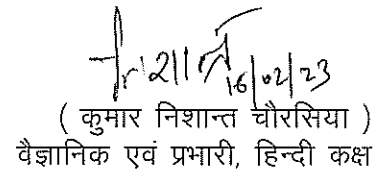 निशान्त 16/02/23
( कुमार निशान्त चौरसिया )
वैज्ञानिक एवं प्रभारी, हिन्दी कक्ष